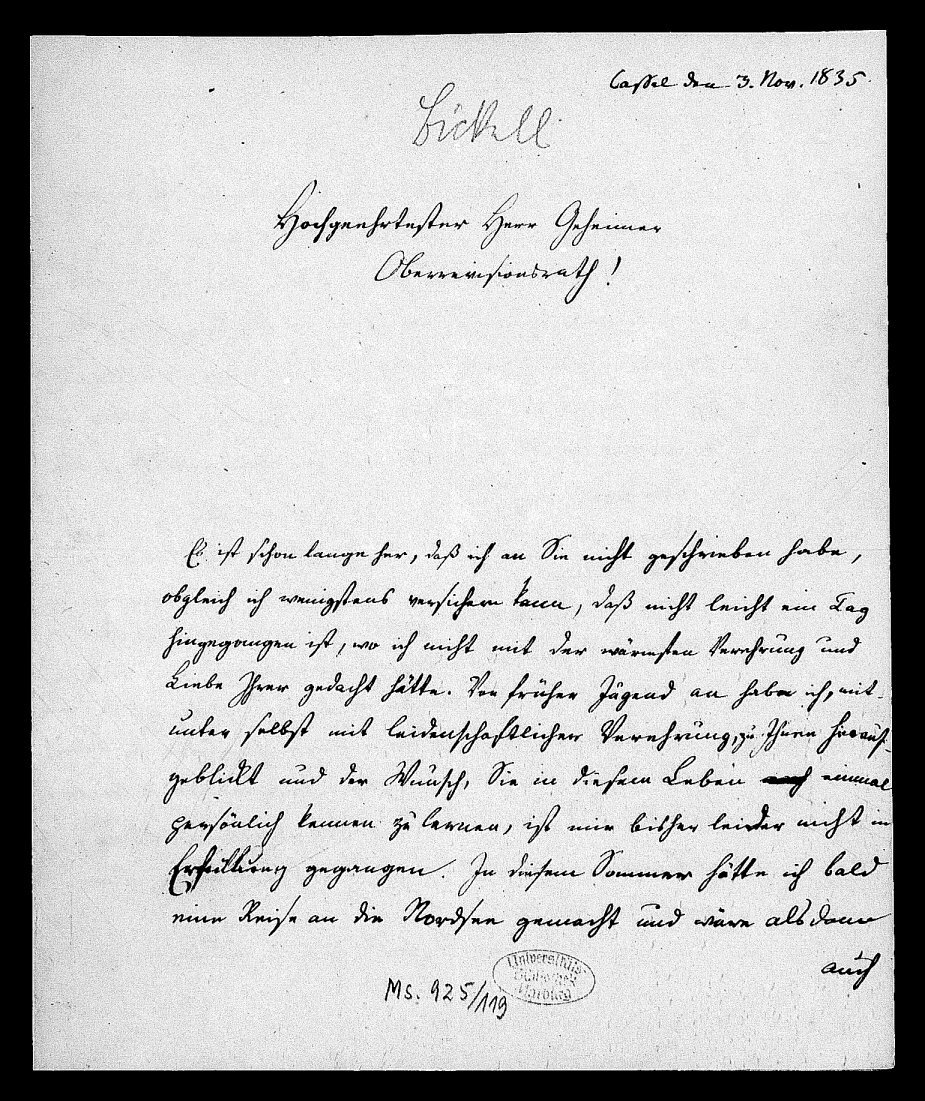 Cassel den 3. Nov. 1835
Bickell
Hochgeehrtester Herr Geheimer
Oberrevisionsrath!
Es ist schon lange her, daß ich an Sie nicht geschrieben habe,
obgleich ich wenigstens versichern kann, daß nicht leicht ein Tag
hingegangen ist, wo ich nicht mit der wärmsten Verehrung und
Liebe Ihrer gedacht hätte. Von früher Jugend an habe ich, mit-
unter selbst mit leidenschaftlicher Verehrung, zu Ihnen hinauf-
geblickt und der Wunsch, Sie in diesem Leben auch einmal
persönlich kennen zu lernen, ist mir bisher leider nicht in
Erfüllung gegangen. In diesem Sommer hätte ich bald
eine Reise an die Nordsee gemacht und wäre alsdann
auch
Universitäts
Bibliothek
Marburg
Ms. 925/119